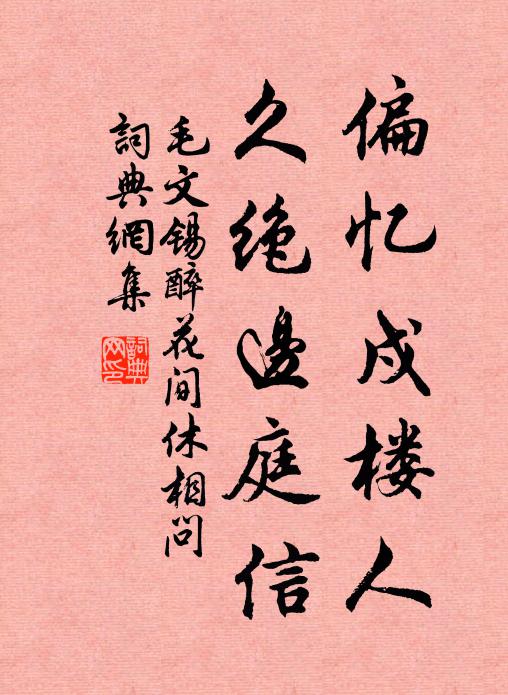 偏忆戍楼人
久绝邊庭信
毛文锡醉花间休相问
詞典網集
詞典网印